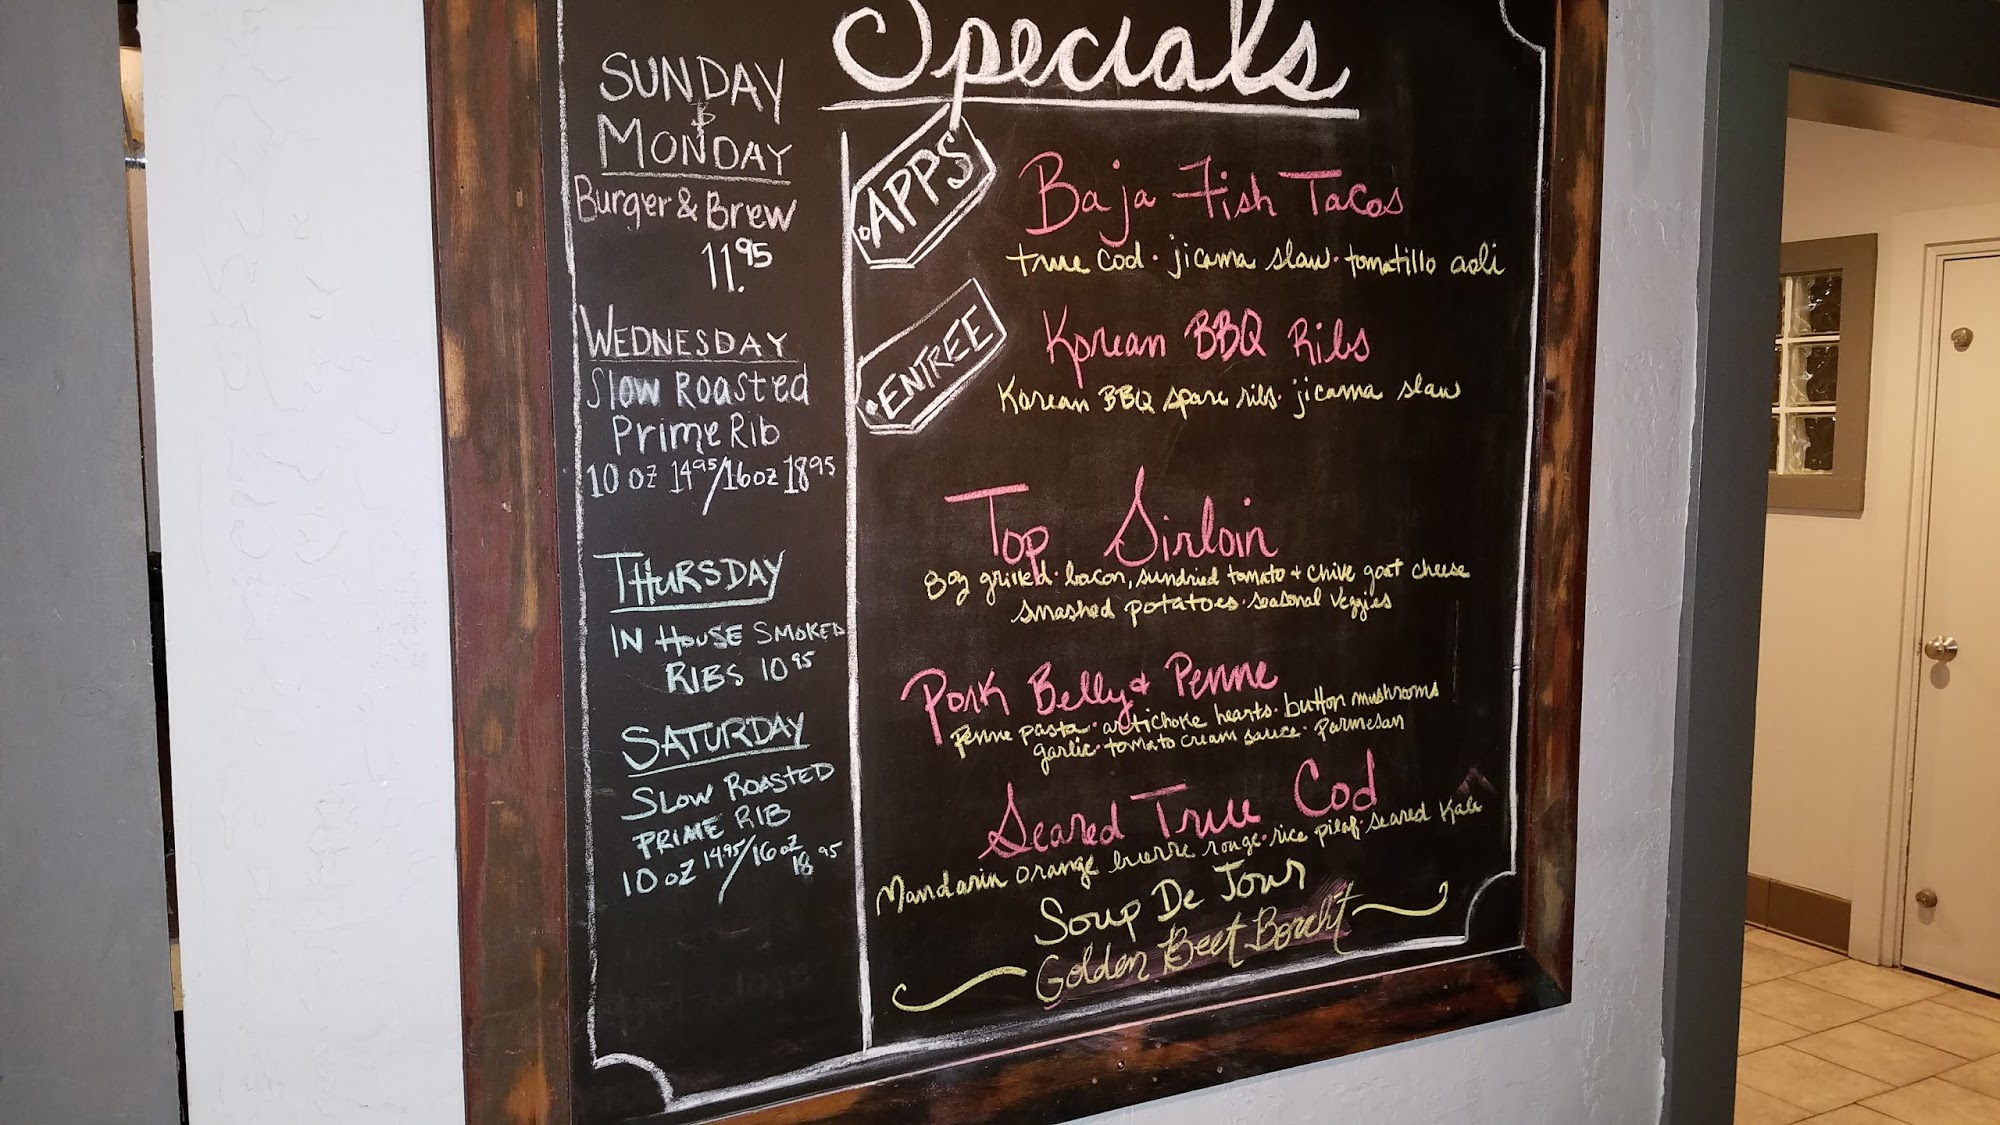 Specials
SUNDAY
&
MONDAY
Burger & Brew
11.95
WEDNESDAY
Slow Roasted
Prime Rib
10 oz 14 95/16 oz 18 95
THURSDAY
IN HOUSE SMOKED
RIBS 10 95
SATURDAY
SLOW ROASTED
PRIME RIB
10 oz 14 95/16 oz 18 95
APPS
Baja Fish Tacos
true cod · jicama slaw · tomatillo aoli
ENTREE
Korean BBQ Ribs
Korean BBQ spare ribs · jicama slaw
Top Sirloin
8oz grilled · bacon, sundried tomato + chive goat cheese
smashed potatoes · seasonal veggies
Pork Belly & Penne
Penne pasta · artichoke hearts · button mushrooms
garlic · tomato cream sauce · Parmesan
Seared True Cod
Mandarin orange buerre rouge · rice pilaf · seared Kale
Soup De Jour
Golden Beet Borcht